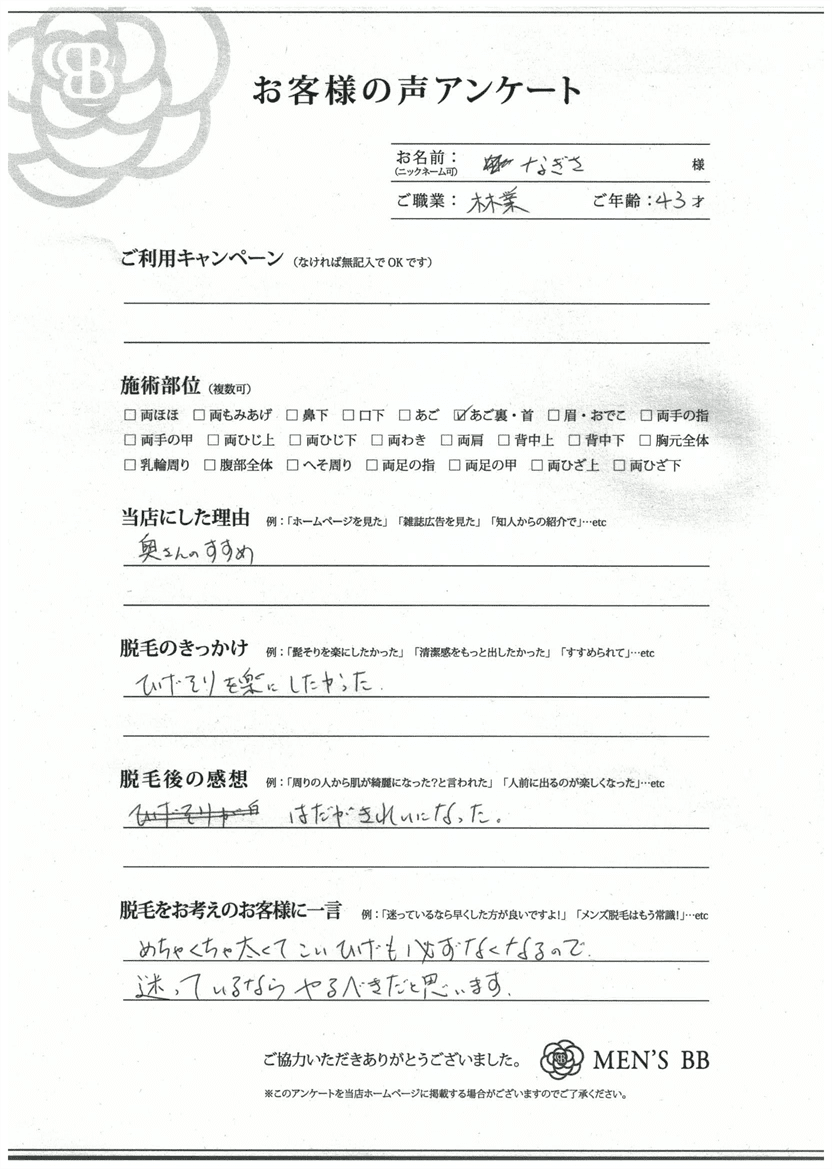 BB
お客様の声アンケート
お名前：
(ニックネーム可)
なぎさ 様
ご職業：林業 ご年齢：43才
ご利用キャンペーン （なければ無記入でOKです）
施術部位（複数可）
□ 両ほほ □ 両もみあげ □ 鼻下 □ 口下 □ あご ☑ あご裏・首 □ 眉・おでこ □ 両手の指
□ 両手の甲 □ 両ひじ上 □ 両ひじ下 □ 両わき □ 両肩 □ 背中上 □ 背中下 □ 胸元全体
□ 乳輪周り □ 腹部全体 □ へそ周り □ 両足の指 □ 両足の甲 □ 両ひざ上 □ 両ひざ下
当店にした理由 例：「ホームページを見た」「雑誌広告を見た」「知人からの紹介で」…etc
奥さんのすすめ
脱毛のきっかけ 例：「髭そりを楽にしたかった」「清潔感をもっと出したかった」「すすめられて」…etc
ひげそりを楽にしたかった.
脱毛後の感想 例：「周りの人から肌が綺麗になった?と言われた」「人前に出るのが楽しくなった」…etc
ひげそりが はだがきれいになった。
脱毛をお考えのお客様に一言 例：「迷っているなら早くした方が良いですよ!」「メンズ脱毛はもう常識!」…etc
めちゃくちゃ太くてこいひげも必ずなくなるので.
迷っているならやるべきだと思います.
ご協力いただきありがとうございました。 MEN'S BB
※このアンケートを当店ホームページに掲載する場合がございますのでご了承ください。